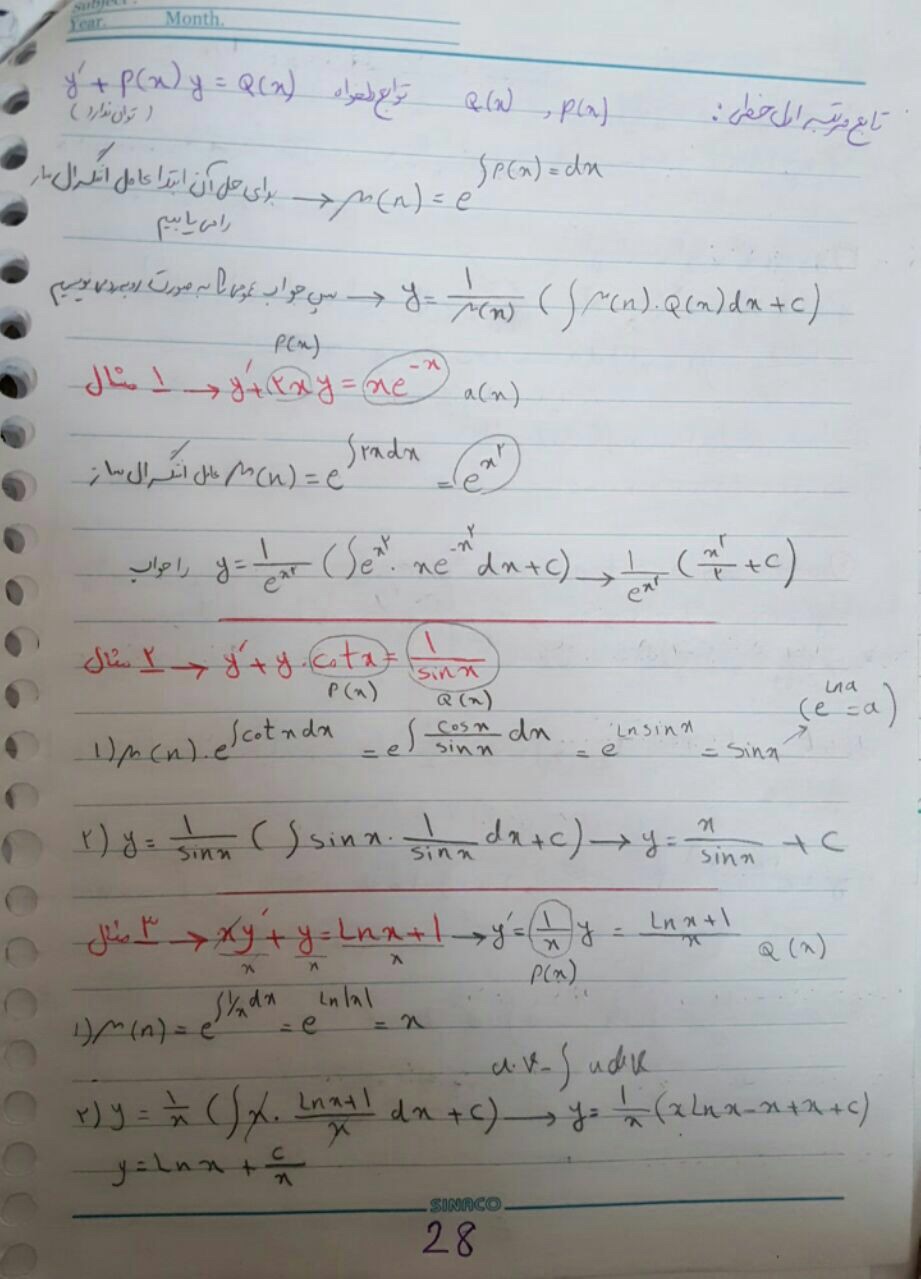 Subject:
Year. Month.
تابع مرتبه اول خطی : P(x) , Q(x) توابع دلخواه y′ + P(x) y = Q(x)
(توان ندارد)
برای حل آن ابتدا عامل انتگرال ساز → μ(x) = e^∫P(x)=dx
را می یابیم
سپس جواب عمومی را به صورت روبه رو می نویسیم → y = 1/μ(x) (∫μ(x).Q(x)dx + c)
P(x)
مثال ۱ → y′+ ۲x y = xe^-x a(x)
عامل انتگرال ساز μ(x) = e^∫۲xdx = e^x^۲
جواب y = 1/e^x^۲ (∫e^x^۲ . xe^-x^۲ dx + c) → 1/e^x^۲ (x^۲/۲ + c)
مثال ۲ → y′ + y . cotx = 1/sinx
P(x) Q(x)
(e^Lna = a)
1) μ(x) . e^∫cotxdx = e^∫ cosx/sinx dx = e^Lnsinx = sinx
۲) y = 1/sinx (∫ sinx . 1/sinx dx + c) → y = x/sinx + C
مثال ۳ → xy′/x + y/x = Lnx+1/x → y′ = 1/x y = Lnx+1/x Q(x)
P(x)
1) μ(x) = e^∫1/x dx = e^Ln|x| = x
u.v - ∫udv
۲) y = 1/x (∫x . Lnx+1/x dx + c) → y = 1/x (xLnx - x + x + c)
y = Lnx + c/x
SINACO
28